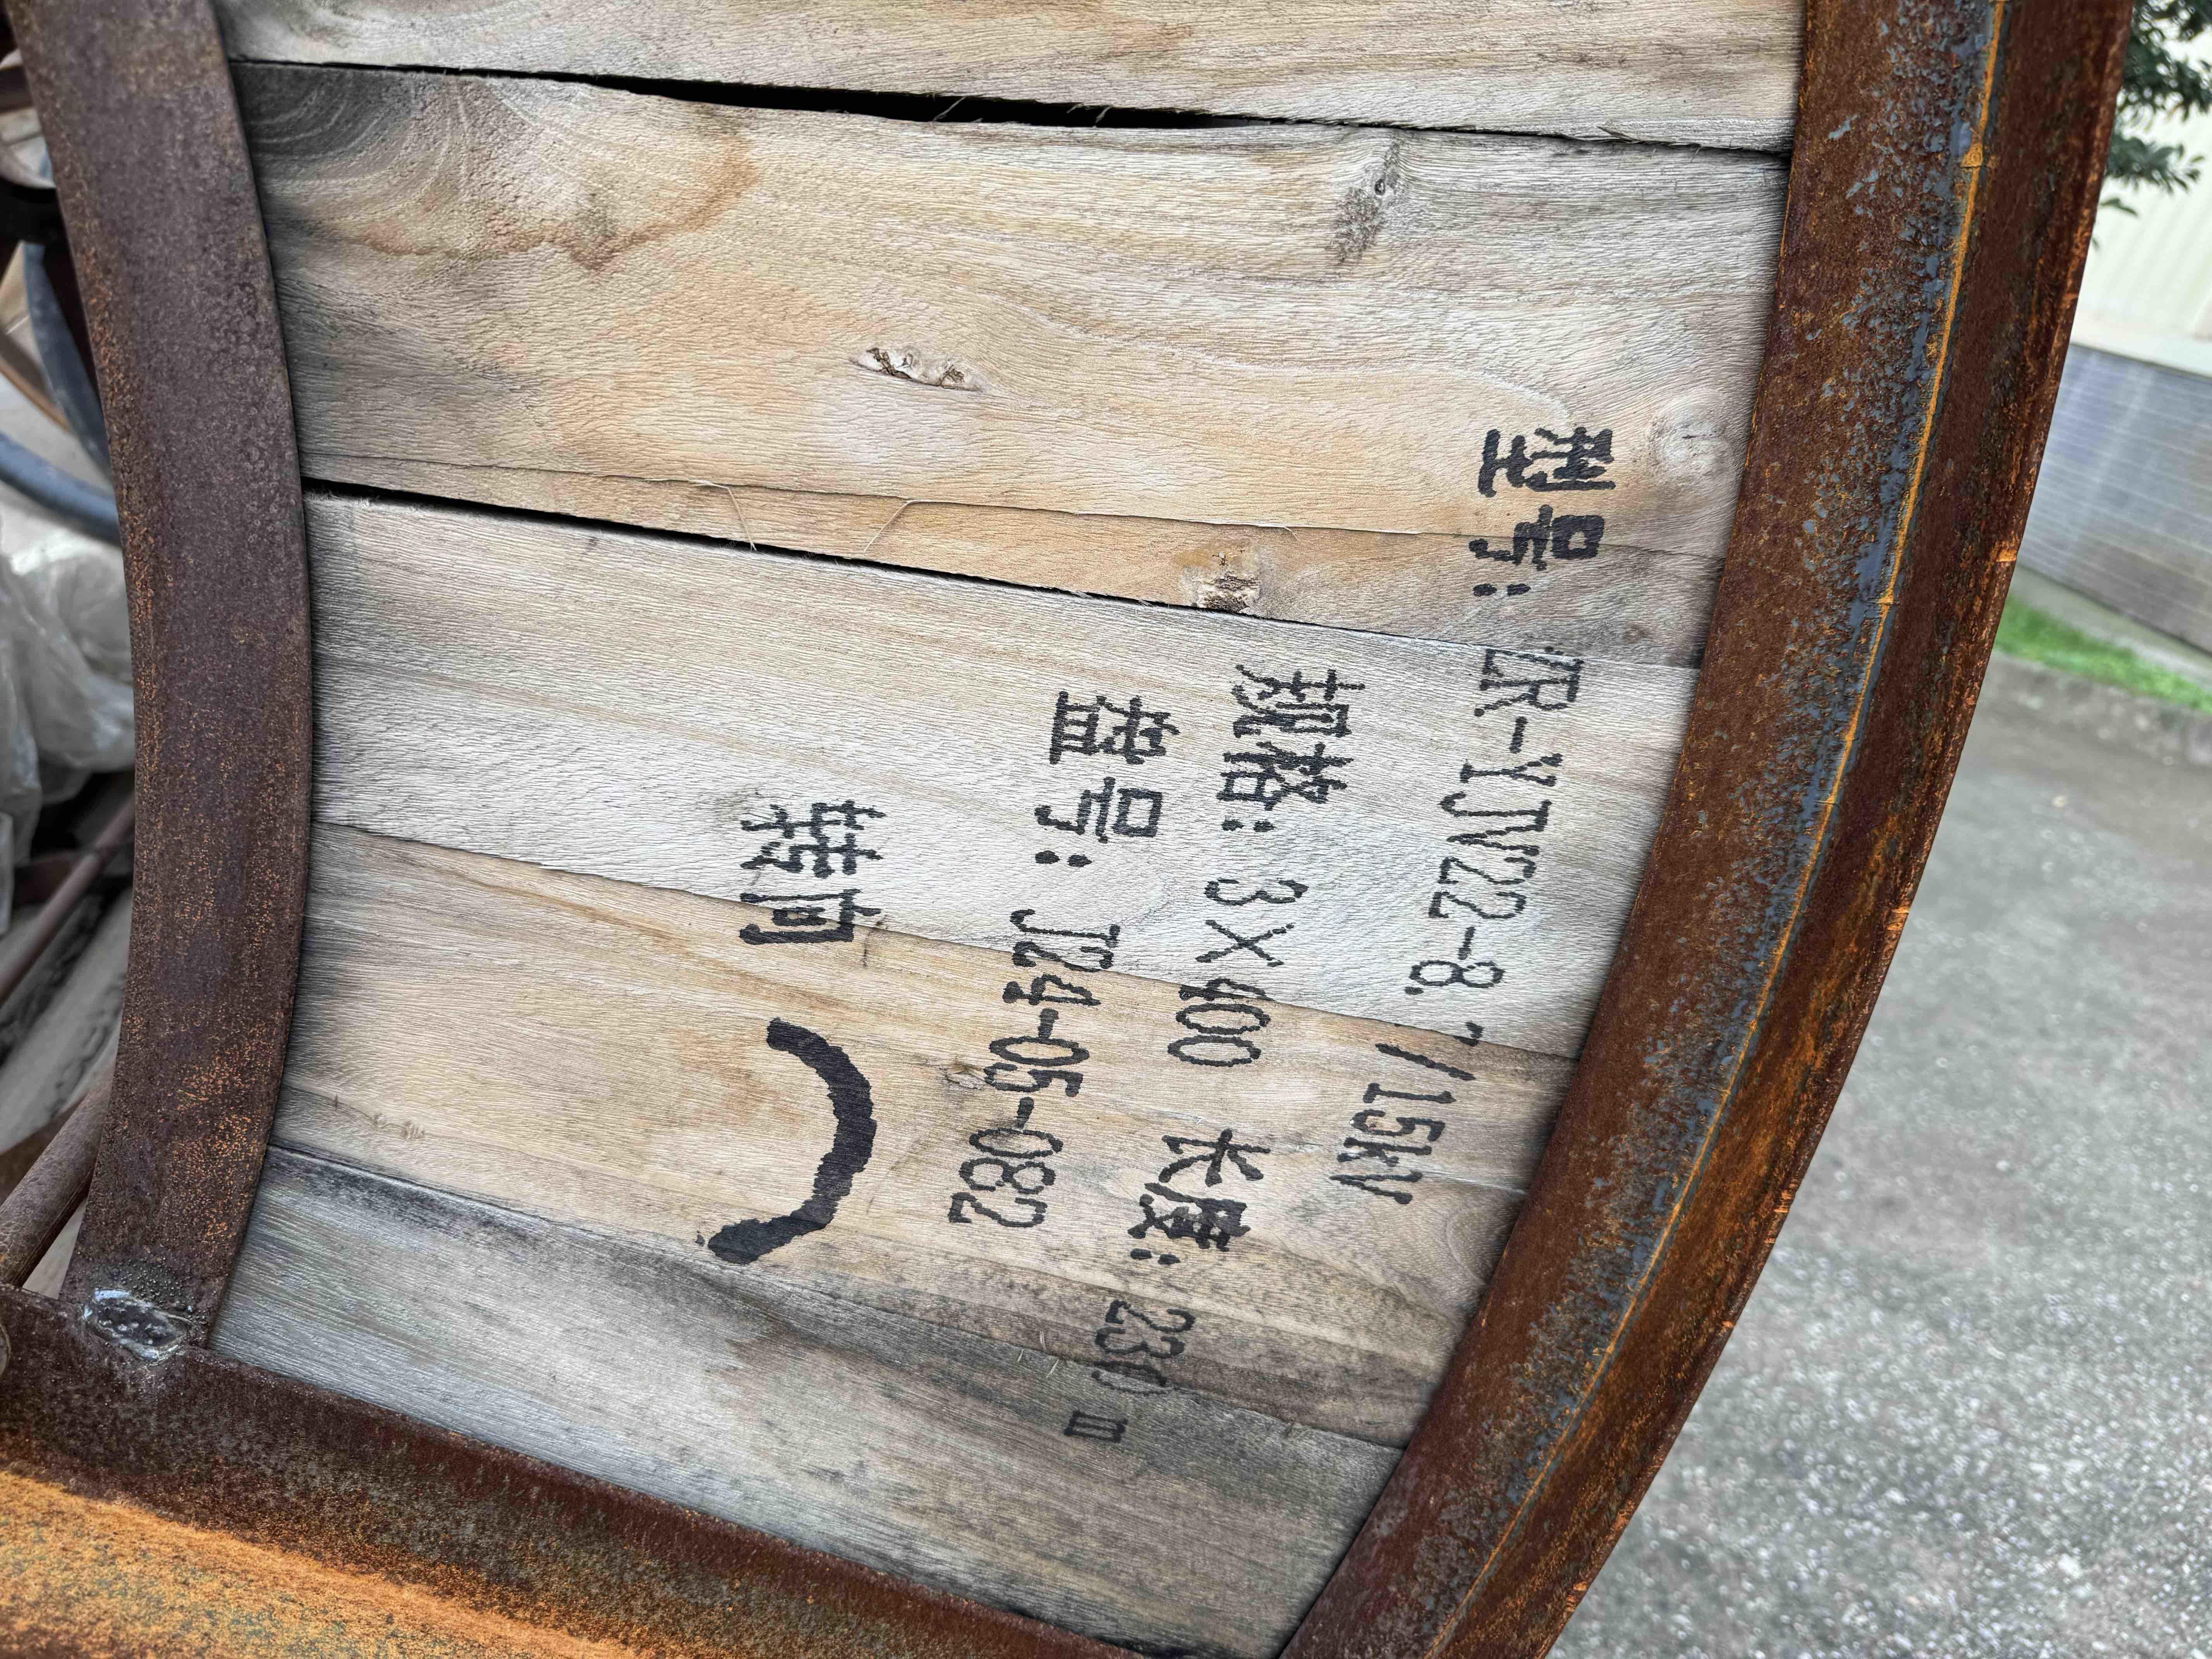 型号: ZR-YJV22-8.7/15kV
规格: 3X400 长度: 230 m
盘号: J24-05-082
转向